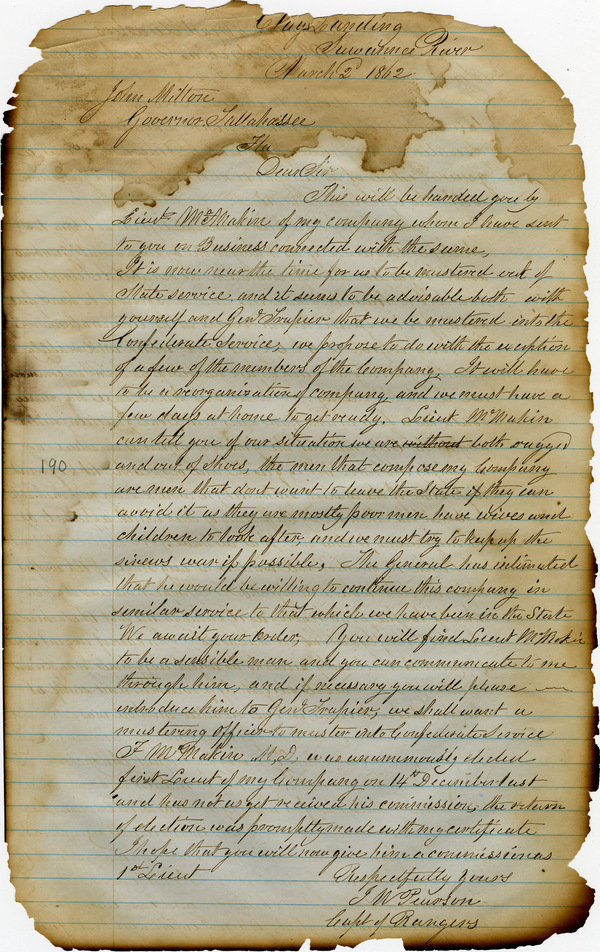 Clays Landing
Suwannee River
March 2d 1862
John Milton
Governor Tallahassee
Fla
Dear Sir
This will be handed you by
Lieut McMakin of my company whom I have sent
to you on Business connected with the same,
It is now near the time for us to be mustered out of
State service, and it seems to be advisable both with
yourself and Genl Trapier that we be mustered into the
Confederate Service, we propose to do with the exception
of a few of the members of the Company, It will have
to be a reorganization of company, and we must have a
few days at home to get ready. Lieut McMakin
can tell you of our situation we are without both ragged
and out of shoes, the men that compose my Company
190
are men that dont want to leave the State if they can
avoid it as they are mostly poor men have wives and
children to look after, and we must try to keep up the
sinews war if possible, The General has intimated
that he would be willing to continue this company in
similar service to that which we have been in the State
We await your Order, You will find Lieut McMakin
to be a sensible man and you can communicate to me
through him, and if necessary you will please
introduce him to Genl Trapier, we shall want a
mustering officer to muster into Confederate Service
F McMakin M.D. was unanimously elected
first Lieut of my Company on 14th December last
and has not as yet received his commission, the return
of election was promptly made with my certificate
I hope that you will now give him a commission as
1st Lieut Respectfully Yours
J W Pearson
Capt of Rangers